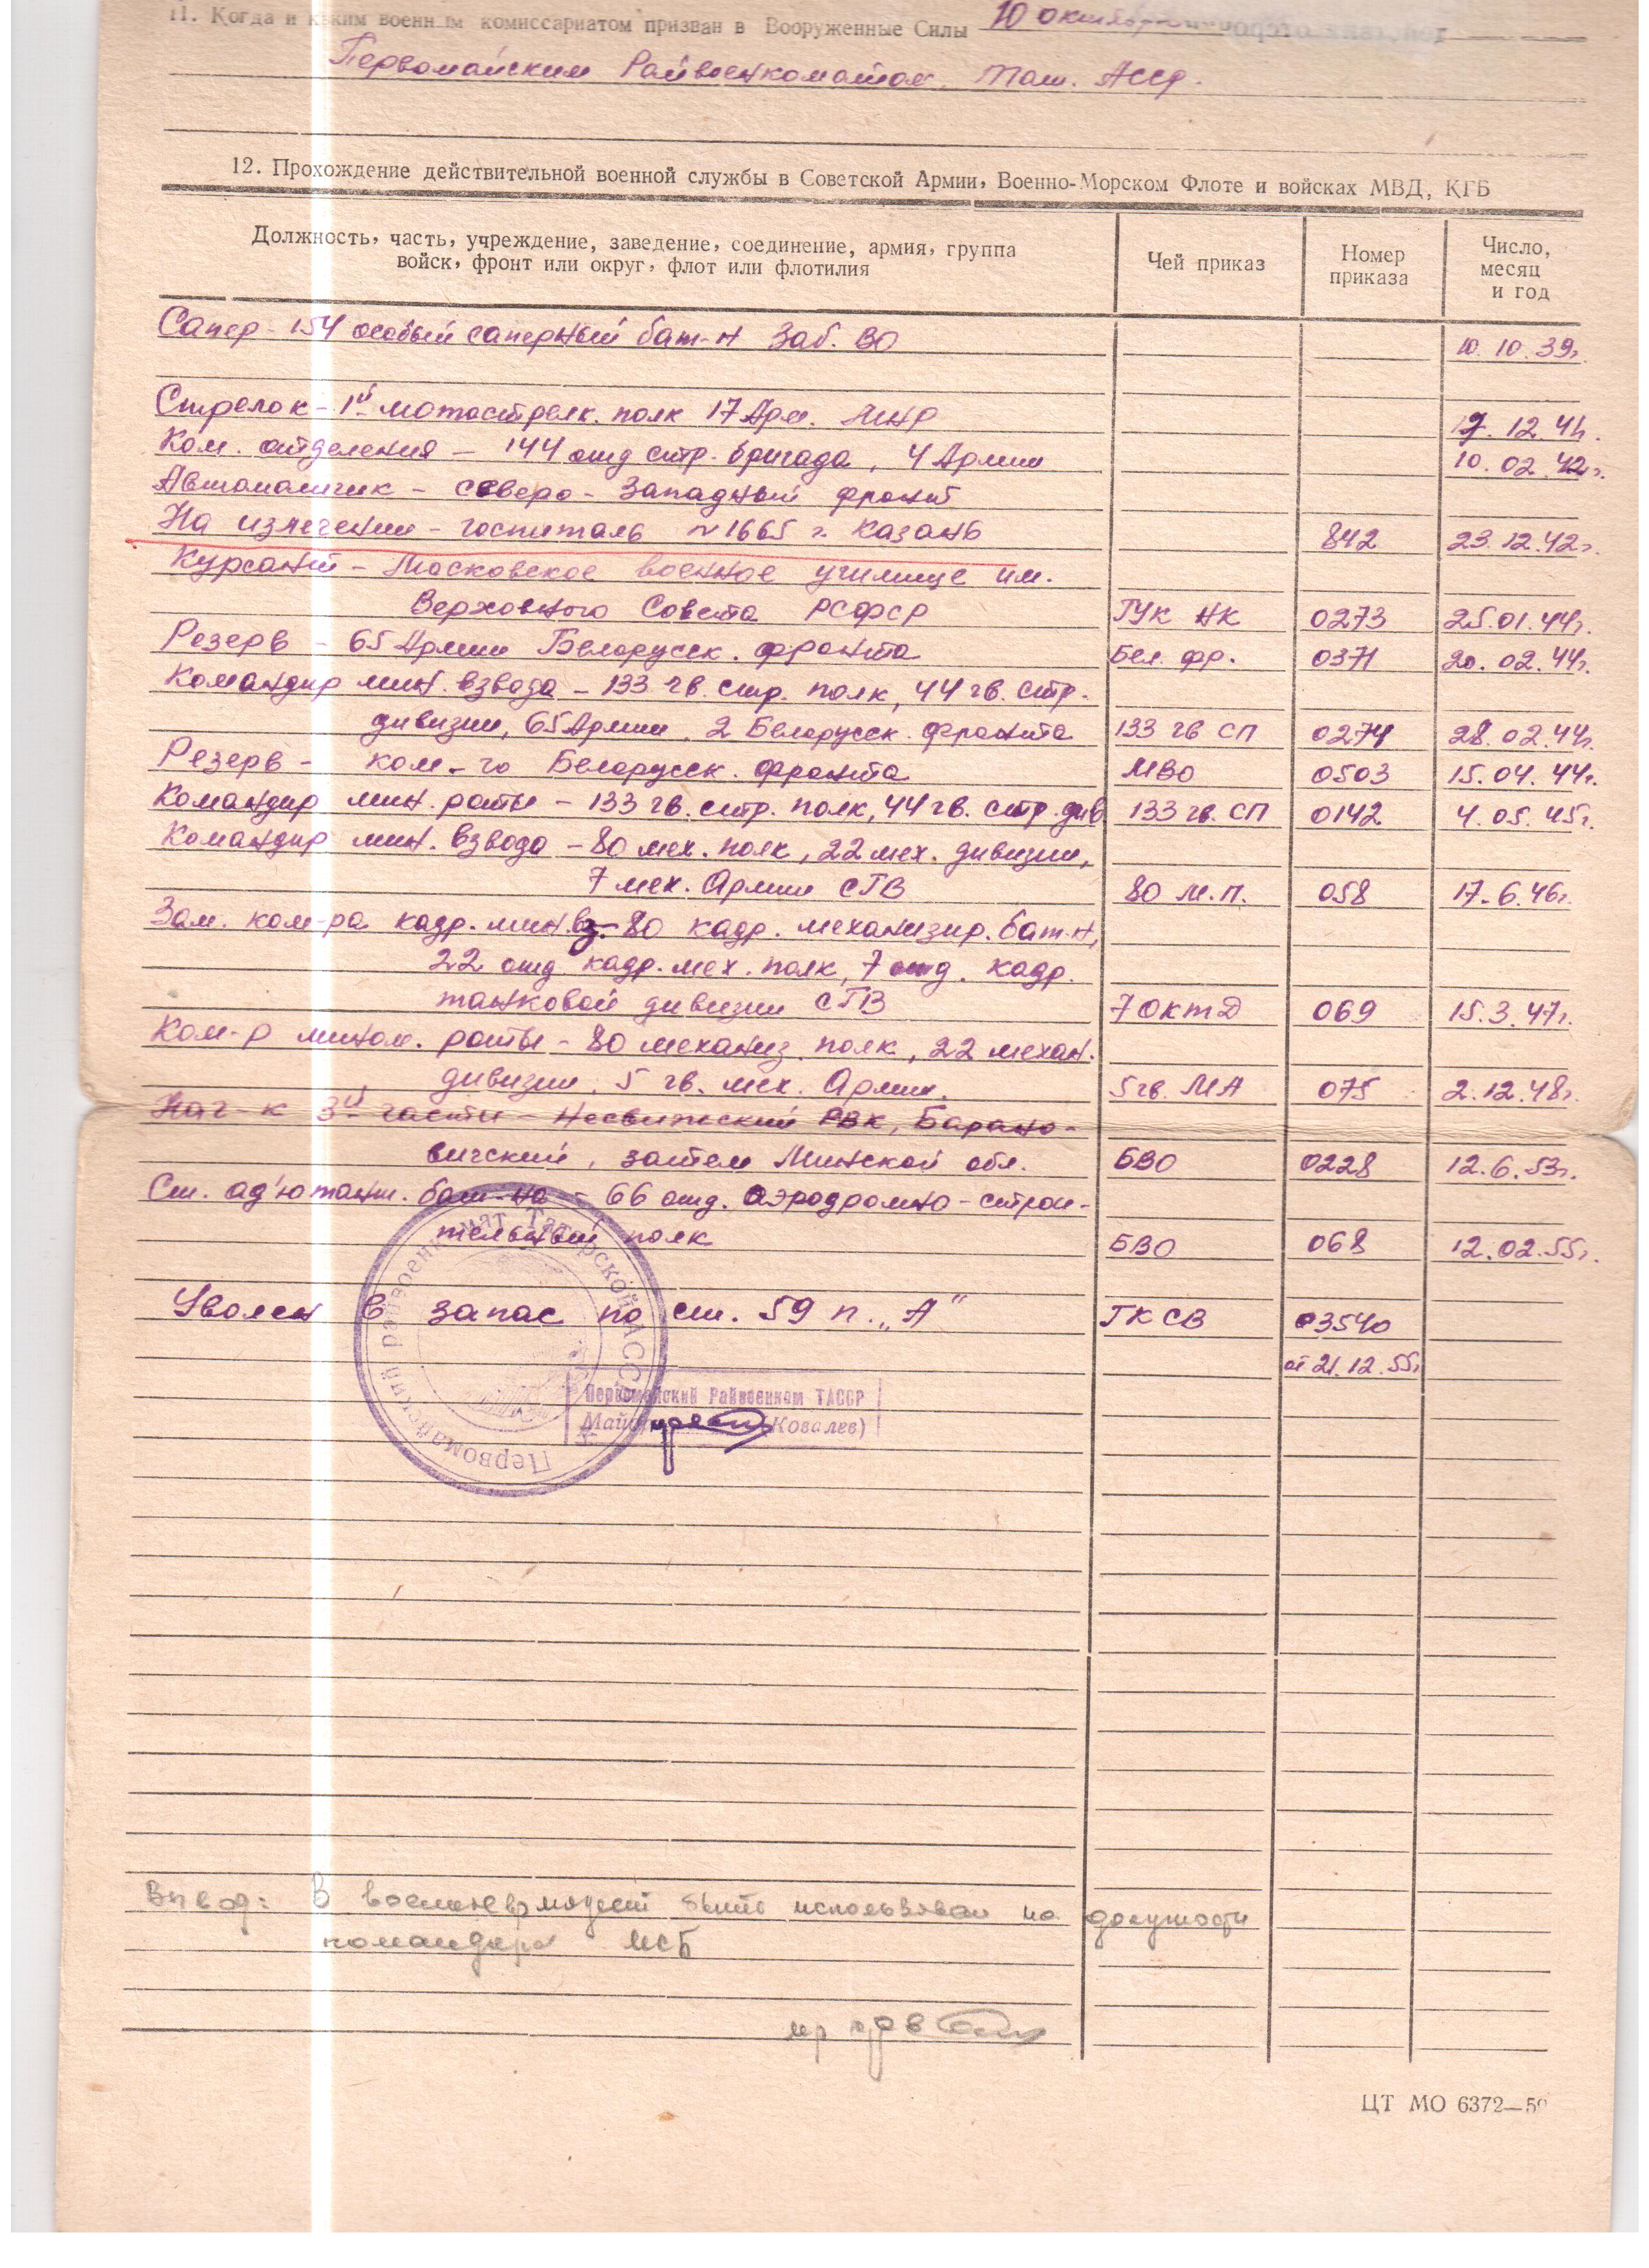 11. Когда и каким военным комиссариатом призван в Вооруженные Силы 10 октября
Первомайским Райвоенкоматом, Тат. АССР.
12. Прохождение действительной военной службы в Советской Армии, Военно-Морском Флоте и войсках МВД, КГБ
Должность, часть, учреждение, заведение, соединение, армия, группа войск, фронт или округ, флот или флотилия Чей приказ Номер приказа Число, месяц и год
Сапер - 154 особый саперный бат-н Заб. ВО 10.10.39г.
Стрелок - 1й мотострелк. полк 17 Арм. МНР 12.41г.
Ком. отделения - 144 отд стр. бригада, 4 Армии 10.02.42г.
Автоматчик - северо-Западный фронт
На излечении - госпиталь №1665 г. Казань 842 23.12.42г.
Курсант - Московское военное училище им.
Верховного Совета РСФСР ГУК НК 0273 25.01.44г.
Резерв - 65 Армии Белорусск. фронта Бел. фр. 0371 20.02.44г.
Командир мин. взвода - 133 гв. стр. полк, 44 гв. стр.
дивизии, 65 Армии, 2 Белорусск. фронта 133 гв СП 0274 28.02.44г.
Резерв - ком-го Белорусск. фронта МВО 0503 15.04.44г.
Командир мин. роты - 133 гв. стр. полк, 44 гв. стр. див 133 гв. СП 0142 4.05.45г.
Командир мин. взвода - 80 мех. полк, 22 мех. дивизии,
7 мех. Армии СГВ 80 М.П. 058 17.6.46г.
Зам. ком-ра кадр. мин. вз. - 80 кадр. механизир. бат-н,
22 отд кадр. мех. полк, 7 отд. кадр.
танковой дивизии СГВ 7 ОКТД 069 15.3.47г.
Ком-р мином. роты - 80 механиз. полк, 22 механ.
дивизии, 5 гв. мех. Армии. 5 гв. МА 075 2.12.48г.
Нач-к 3й части - Несвижский РВК, Барано-
вичский, затем Минской обл. БВО 0228 12.6.53г.
Ст. ад'ютант. бат-на - 66 отд. аэродромно-строи-
тельный полк БВО 068 12.02.55г.
Уволен в запас по ст. 59 п. „А" ГК СВ 03540
от 21.12.55г
Первомайский райвоенкомат Татарской АССР
Первомайский Райвоенком ТАССР
Майор (Ковалев)
Вывод: В военное время может быть использован на должности
командира МСБ
ЦТ МО 6372—